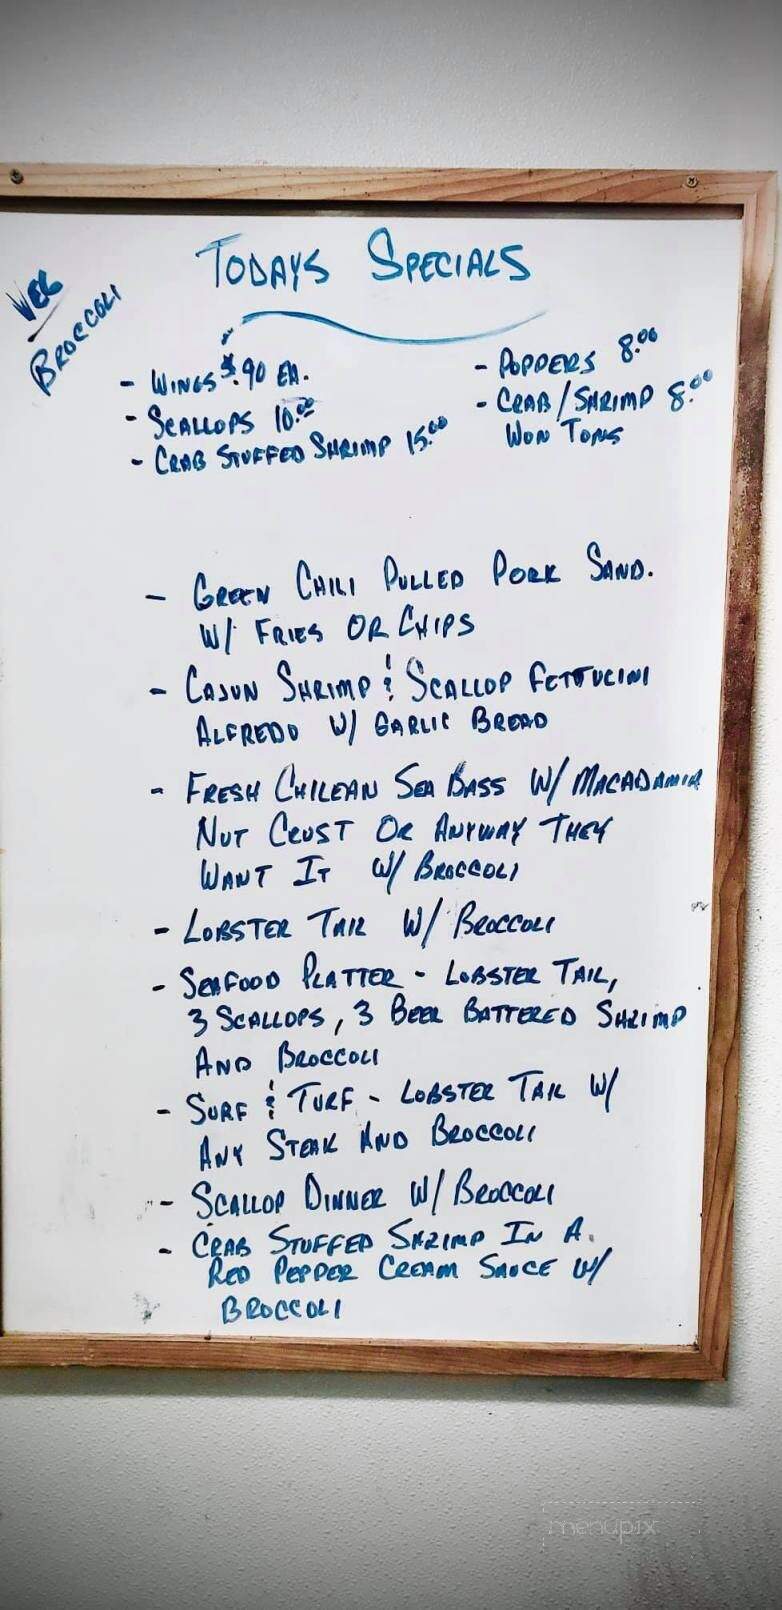 TODAYS SPECIALS
VEG
BROCCOLI
- WINGS $.90 EA.
- SCALLOPS 10.00
- CRAB STUFFED SHRIMP 15.00
- POPPERS 8.00
- CRAB/SHRIMP 8.00
WON TONS
- GREEN CHILI PULLED PORK SAND.
W/ FRIES OR CHIPS
- CAJUN SHRIMP & SCALLOP FETTUCINI
ALFREDO W/ GARLIC BREAD
- FRESH CHILEAN SEA BASS W/ MACADAMIA
NUT CRUST OR ANYWAY THEY
WANT IT W/ BROCCOLI
- LOBSTER TAIL W/ BROCCOLI
- SEAFOOD PLATTER - LOBSTER TAIL,
3 SCALLOPS, 3 BEER BATTERED SHRIMP
AND BROCCOLI
- SURF & TURF - LOBSTER TAIL W/
ANY STEAK AND BROCCOLI
- SCALLOP DINNER W/ BROCCOLI
- CRAB STUFFED SHRIMP IN A
RED PEPPER CREAM SAUCE W/
BROCCOLI
menupix